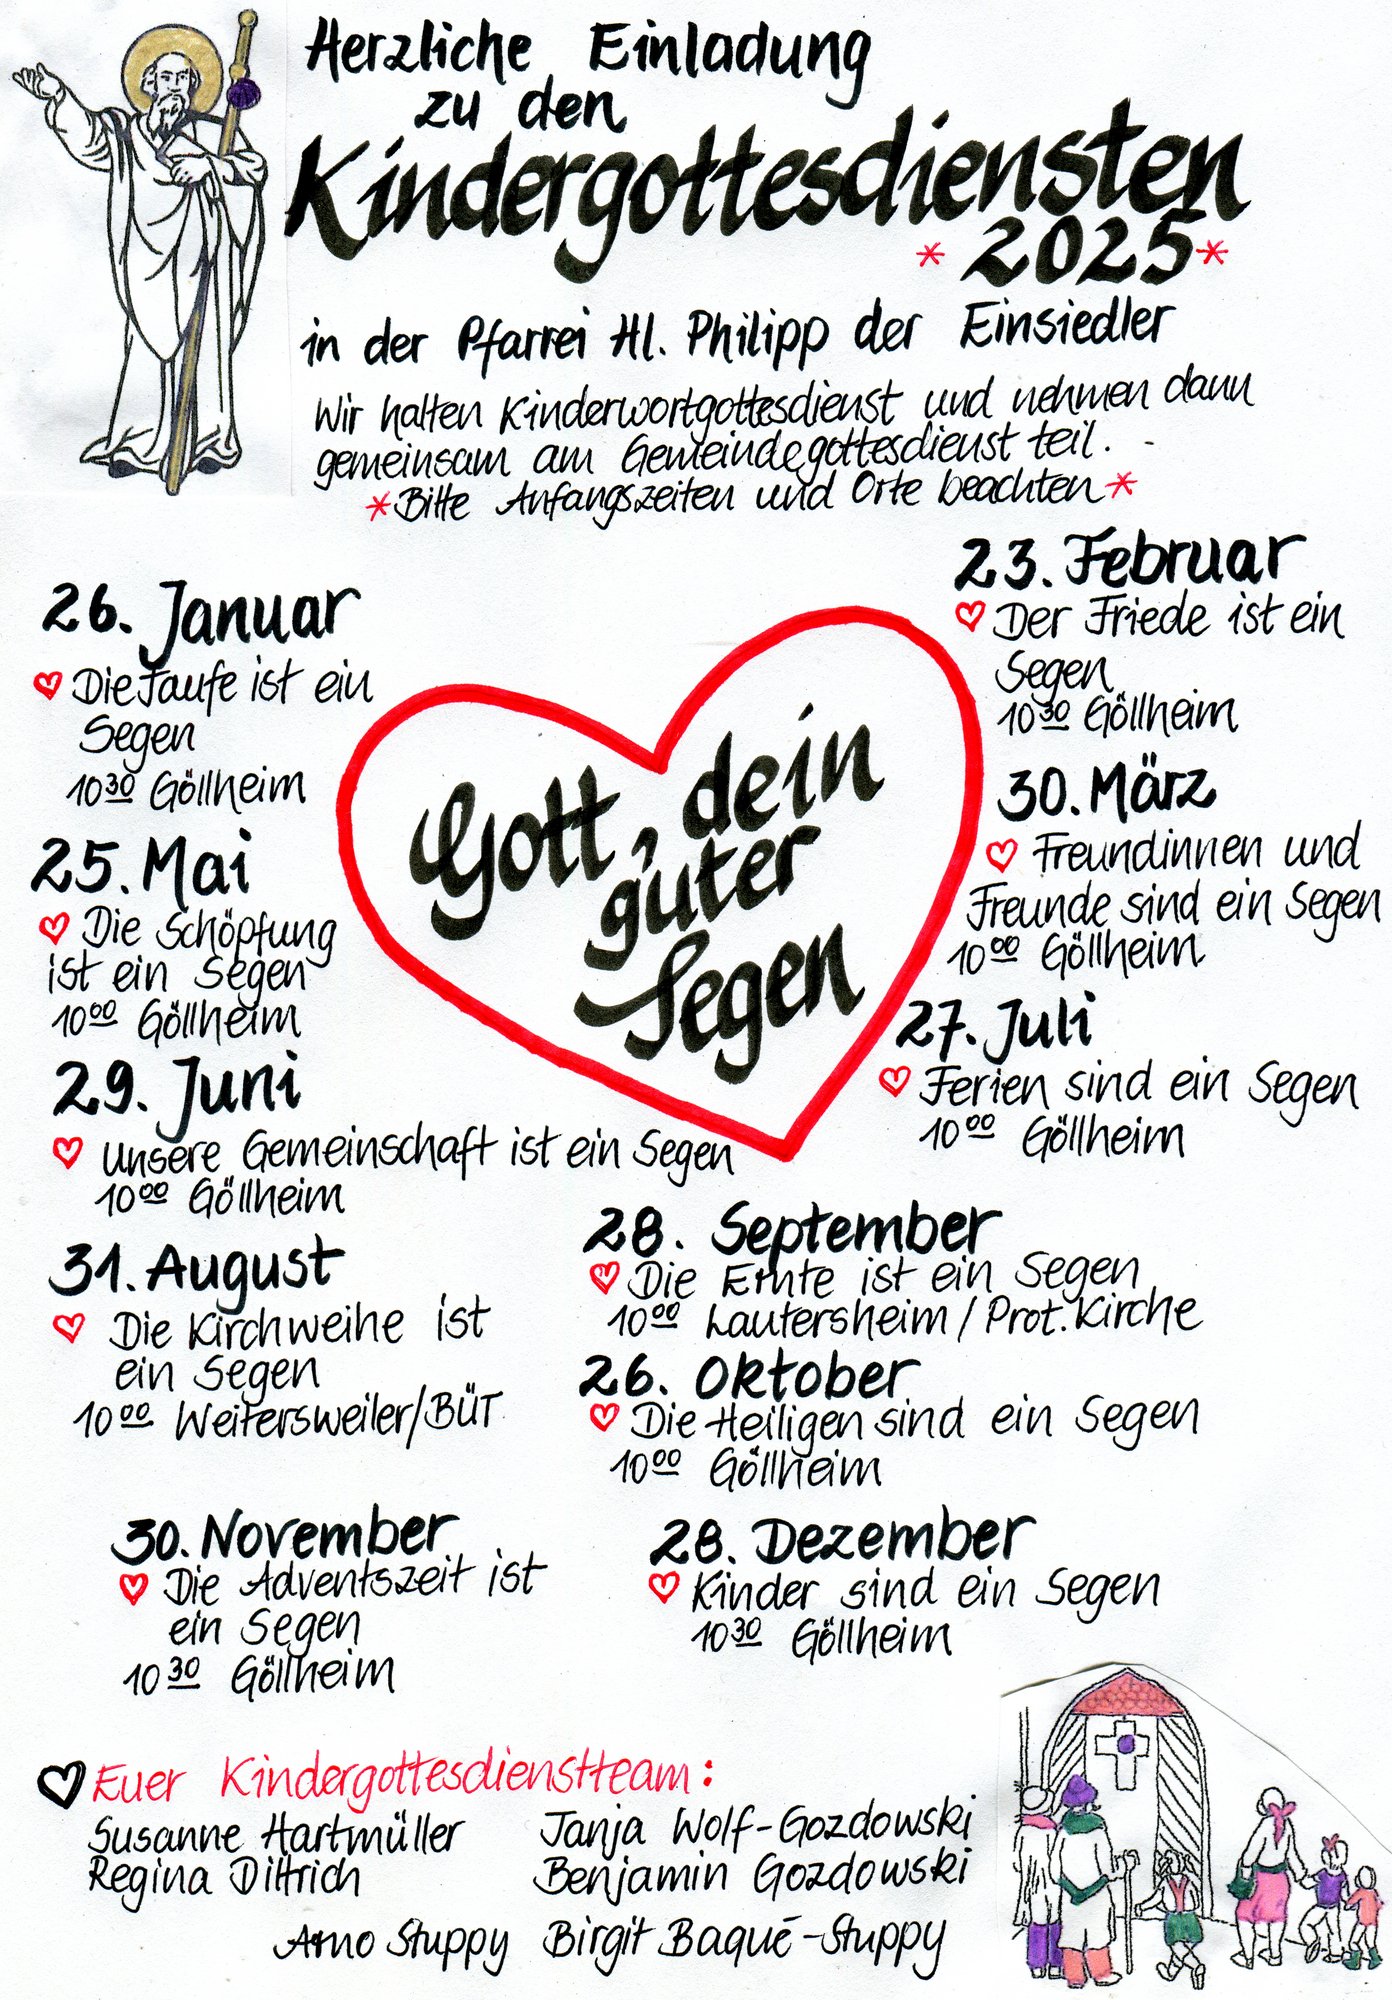 Herzliche Einladung
zu den
Kindergottesdiensten
* 2025 *
in der Pfarrei Hl. Philipp der Einsiedler
Wir halten Kinderwortgottesdienst und nehmen dann
gemeinsam am Gemeindegottesdienst teil.
*Bitte Anfangszeiten und Orte beachten*
26. Januar
♡ Die Taufe ist ein
Segen
10 30 Göllheim
23. Februar
♡ Der Friede ist ein
Segen
10 30 Göllheim
30. März
♡ Freundinnen und
Freunde sind ein Segen
10 00 Göllheim
Gott, dein
guter
Segen
25. Mai
♡ Die Schöpfung
ist ein Segen
10 00 Göllheim
29. Juni
♡ Unsere Gemeinschaft ist ein Segen
10 00 Göllheim
27. Juli
♡ Ferien sind ein Segen
10 00 Göllheim
31. August
♡ Die Kirchweihe ist
ein Segen
10 00 Weitersweiler/BÜT
28. September
♡ Die Ernte ist ein Segen
10 00 Lautersheim / Prot. Kirche
26. Oktober
♡ Die Heiligen sind ein Segen
10 00 Göllheim
30. November
♡ Die Adventszeit ist
ein Segen
10 30 Göllheim
28. Dezember
♡ Kinder sind ein Segen
10 30 Göllheim
♡ Euer Kindergottesdienstteam:
Susanne Hartmüller Tanja Wolf-Gozdowski
Regina Dittrich Benjamin Gozdowski
Arno Stuppy Birgit Baqué-Stuppy